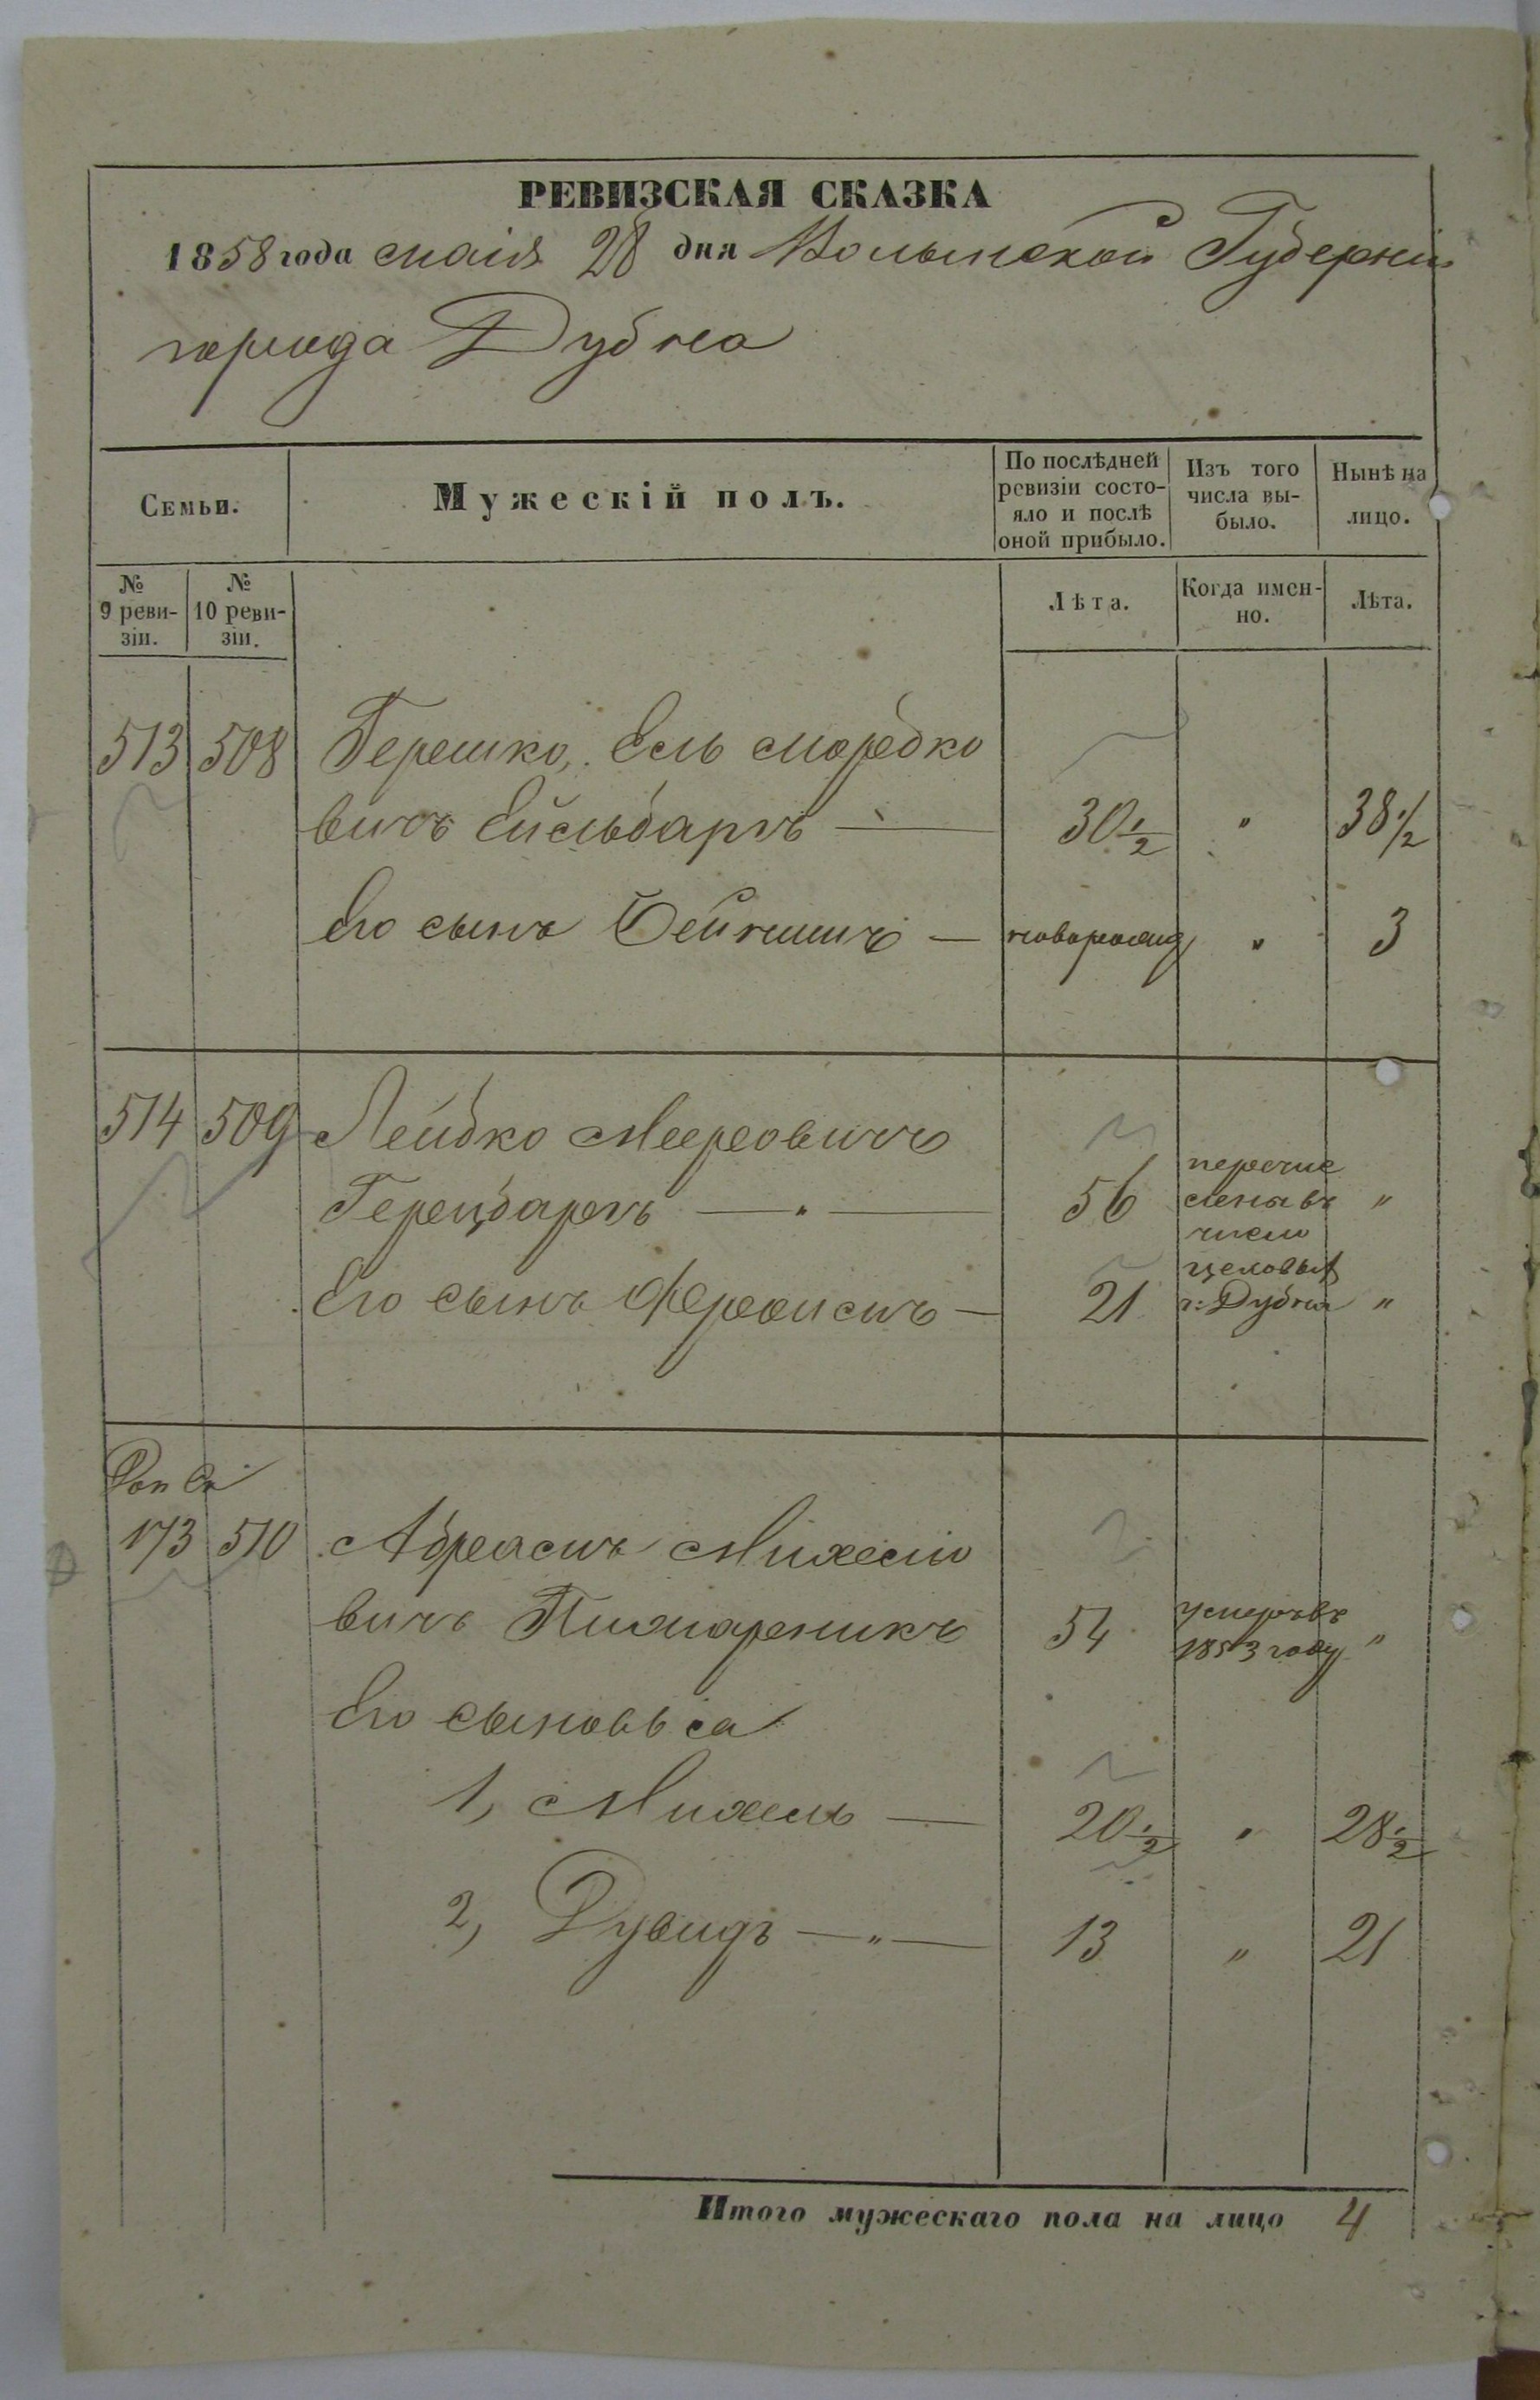 РЕВИЗСКАЯ СКАЗКА
1858 года маія 28 дня Волынской Губерніи
города Дубна
Семьи.
Мужескій полъ.
По послѣдней ревизіи состо-
яло и послѣ
оной прибыло.
Изъ того
числа вы-
было.
Нынѣ на
лицо.
№
9 реви-
зіи.
№
10 реви-
зіи.
Лѣта.
Когда имен-
но.
Лѣта.
513 508 Герешко, Ель Мордко
вичъ — 30 1/2 " 38 1/2
Его сынъ Бейнишъ — новорожд " 3
514 509 Лейбко Мееровичъ
Герецбаргъ — " — 56 "
перечис
лены въ
число
цеховых
г: Дубна
Его сынъ — 21 "
173 510 Абрамъ Михели
вичъ 54 умеръ въ
1853 году "
Его сыновья
1, Михель — 20 1/2 " 28 1/2
2, Дувидъ — " — 13 " 21
Итого мужескаго пола на лицо 4